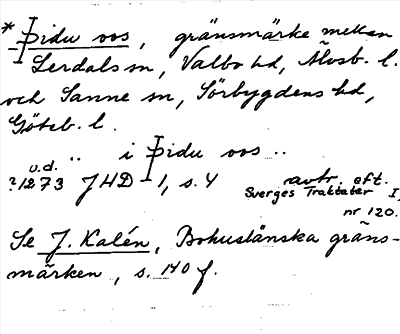 * Þidu vos, gränsmärke mellan
Lerdals sn, Valbo hd, Älvsb. l.
och Sanne sn, Sörbygdens hd,
Göteb. l.
.. i Þidu vos ..
u.d.
?1273 JHD 1, s. 4 avtr. eft.
Sverges Traktater I,
nr 120.
Se J. Kalén, Bohuslänska gräns-
märken, s. 140 f.